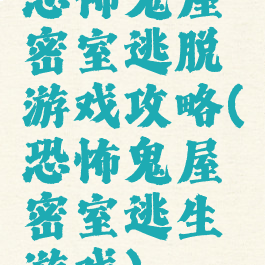 恐怖鬼屋
密室逃脱
游戏攻略(
恐怖鬼屋
密室逃生
游戏)